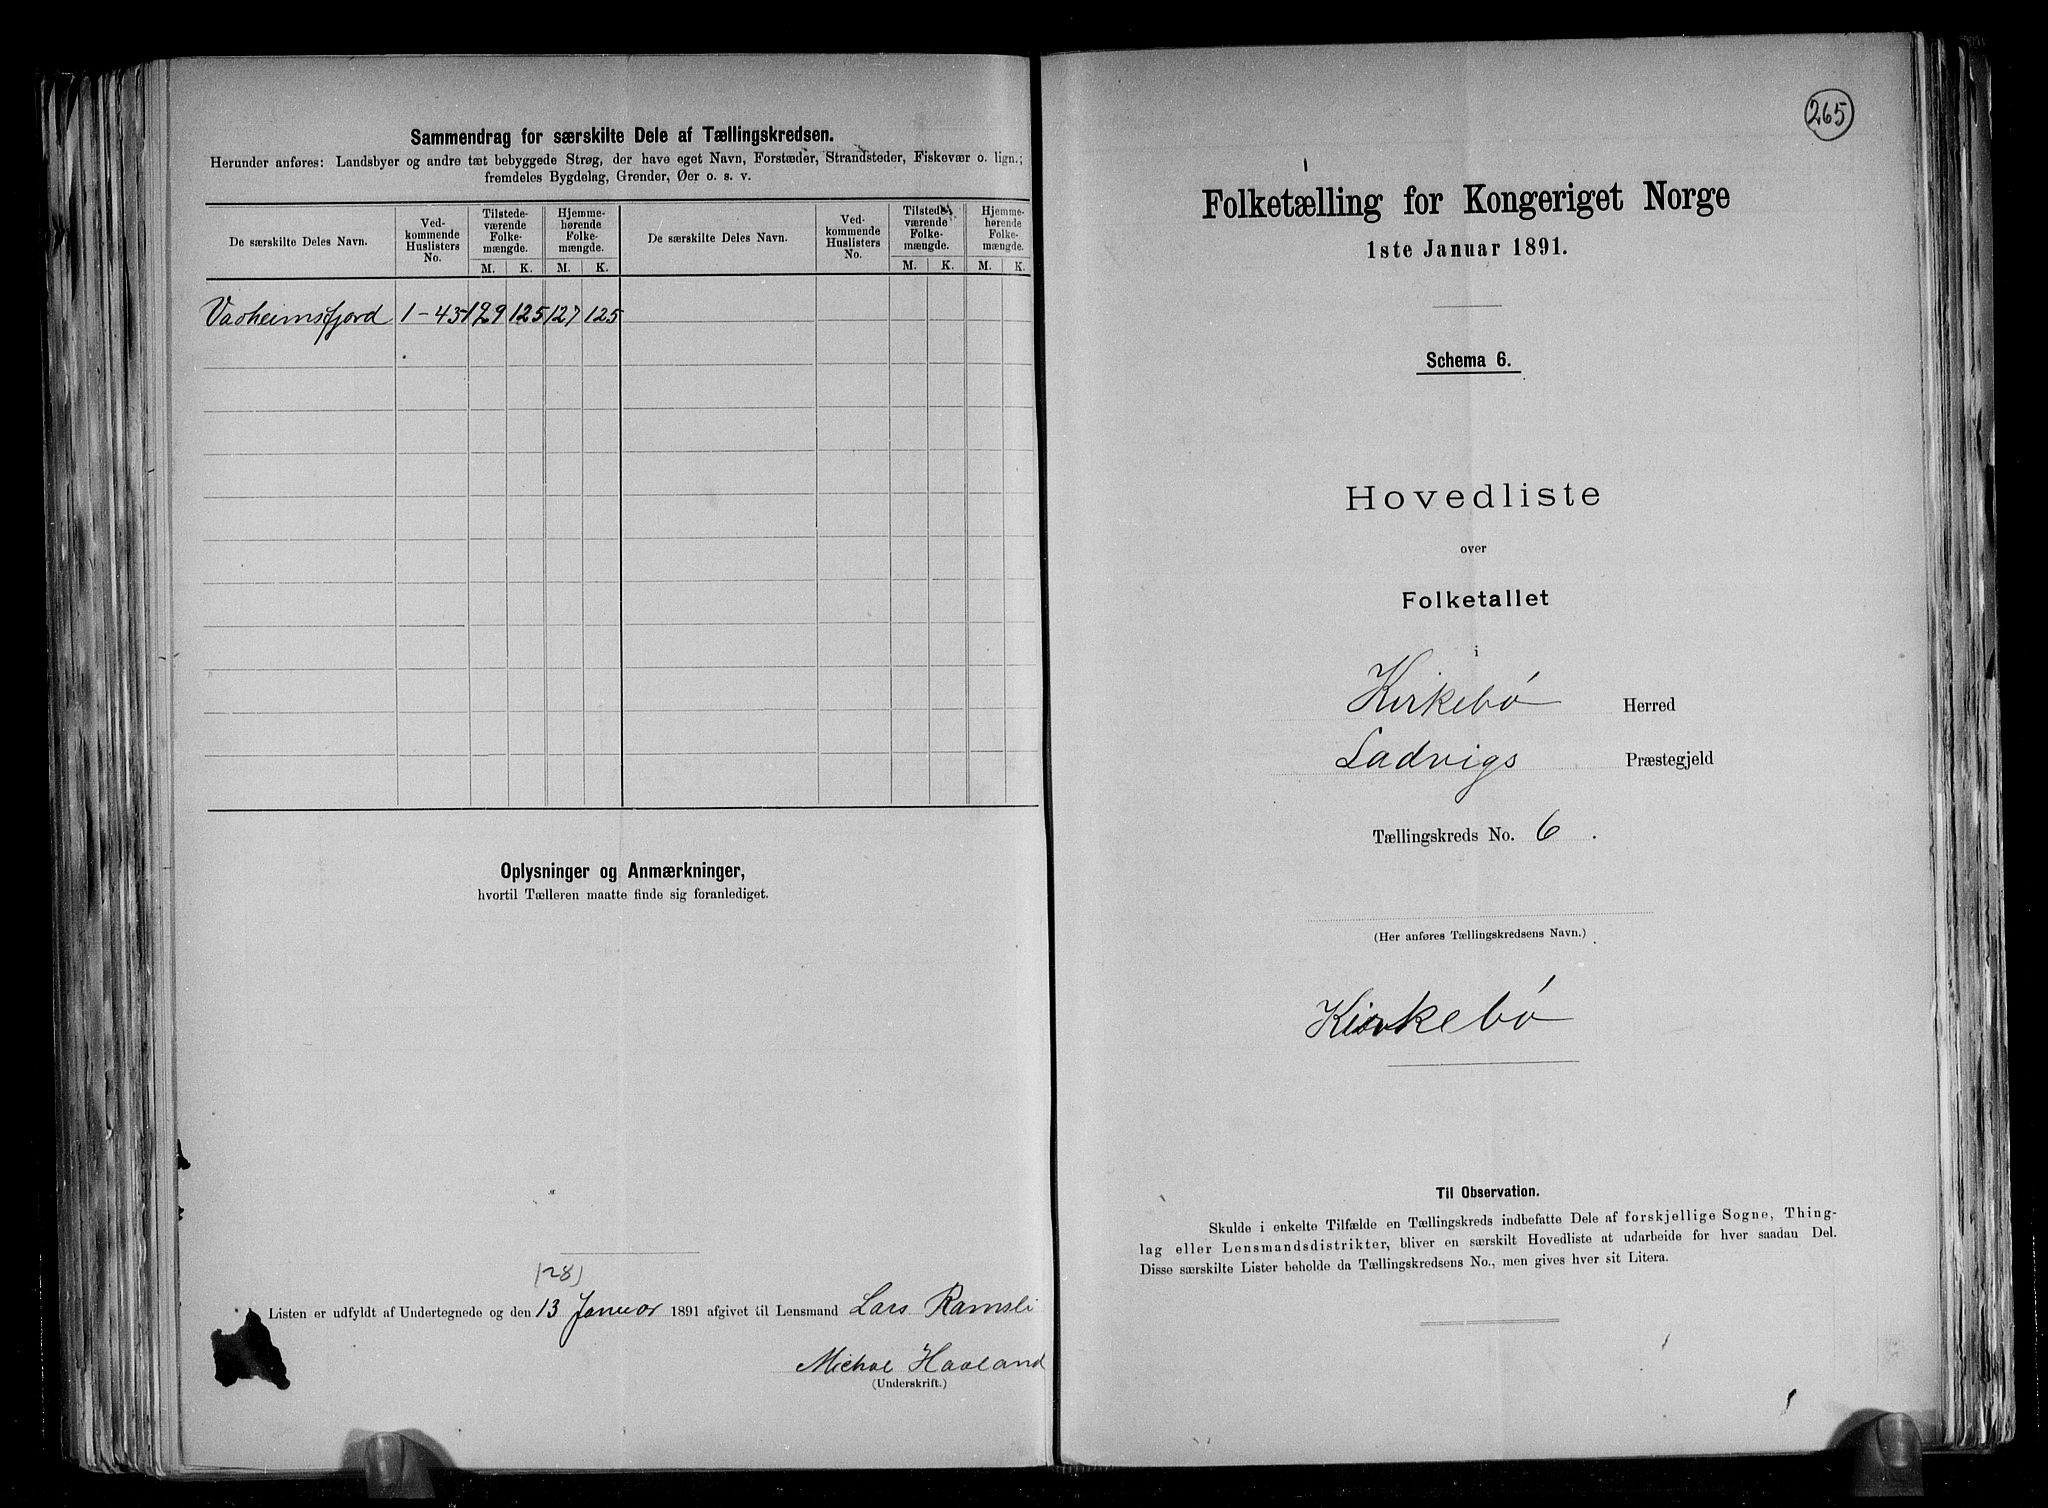 Sammendrag for særskilte Dele af Tællingskredsen.
Herunder anføres: Landsbyer og andre tæt bebyggede Strøg, der have eget Navn, Forstæder, Strandsteder, Fiskevær o. lign.;
fremdeles Bygdelag, Grender, Øer o. s. v.
De særskilte Deles Navn.
Ved-
kommende
Huslisters
No.
Tilstede-
værende
Folke-
mængde.
Hjemme-
hørende
Folke-
mængde.
M. K. M. K.
De særskilte Deles Navn.
Ved-
kommende
Huslisters
No.
Tilstede-
værende
Folke-
mængde.
Hjemme-
hørende
Folke-
mængde.
M. K. M. K.
Vadheimsfjord 1-43 129 125 127 125
Oplysninger og Anmærkninger,
hvortil Tælleren maatte finde sig foranlediget.
(28)
Listen er udfyldt af Undertegnede og den 13 Januar 1891 afgivet til Lensmand Lars Ramsli
Michal Haaland
(Underskrift.)
265
Folketælling for Kongeriget Norge
1ste Januar 1891.
Schema 6.
Hovedliste
over
Folketallet
i
Kirkebø Herred
Ladvigs Præstegjeld
Tællingskreds No. 6.
(Her anføres Tællingskredsens Navn.)
Kirkebø
Til Observation.
Skulde i enkelte Tilfælde en Tællingskreds indbefatte Dele af forskjellige Sogne, Thing-
lag eller Lensmandsdistrikter, bliver en særskilt Hovedliste at udarbeide for hver saadan Del.
Disse særskilte Lister beholde da Tællingskredsens No., men gives hver sit Litera.